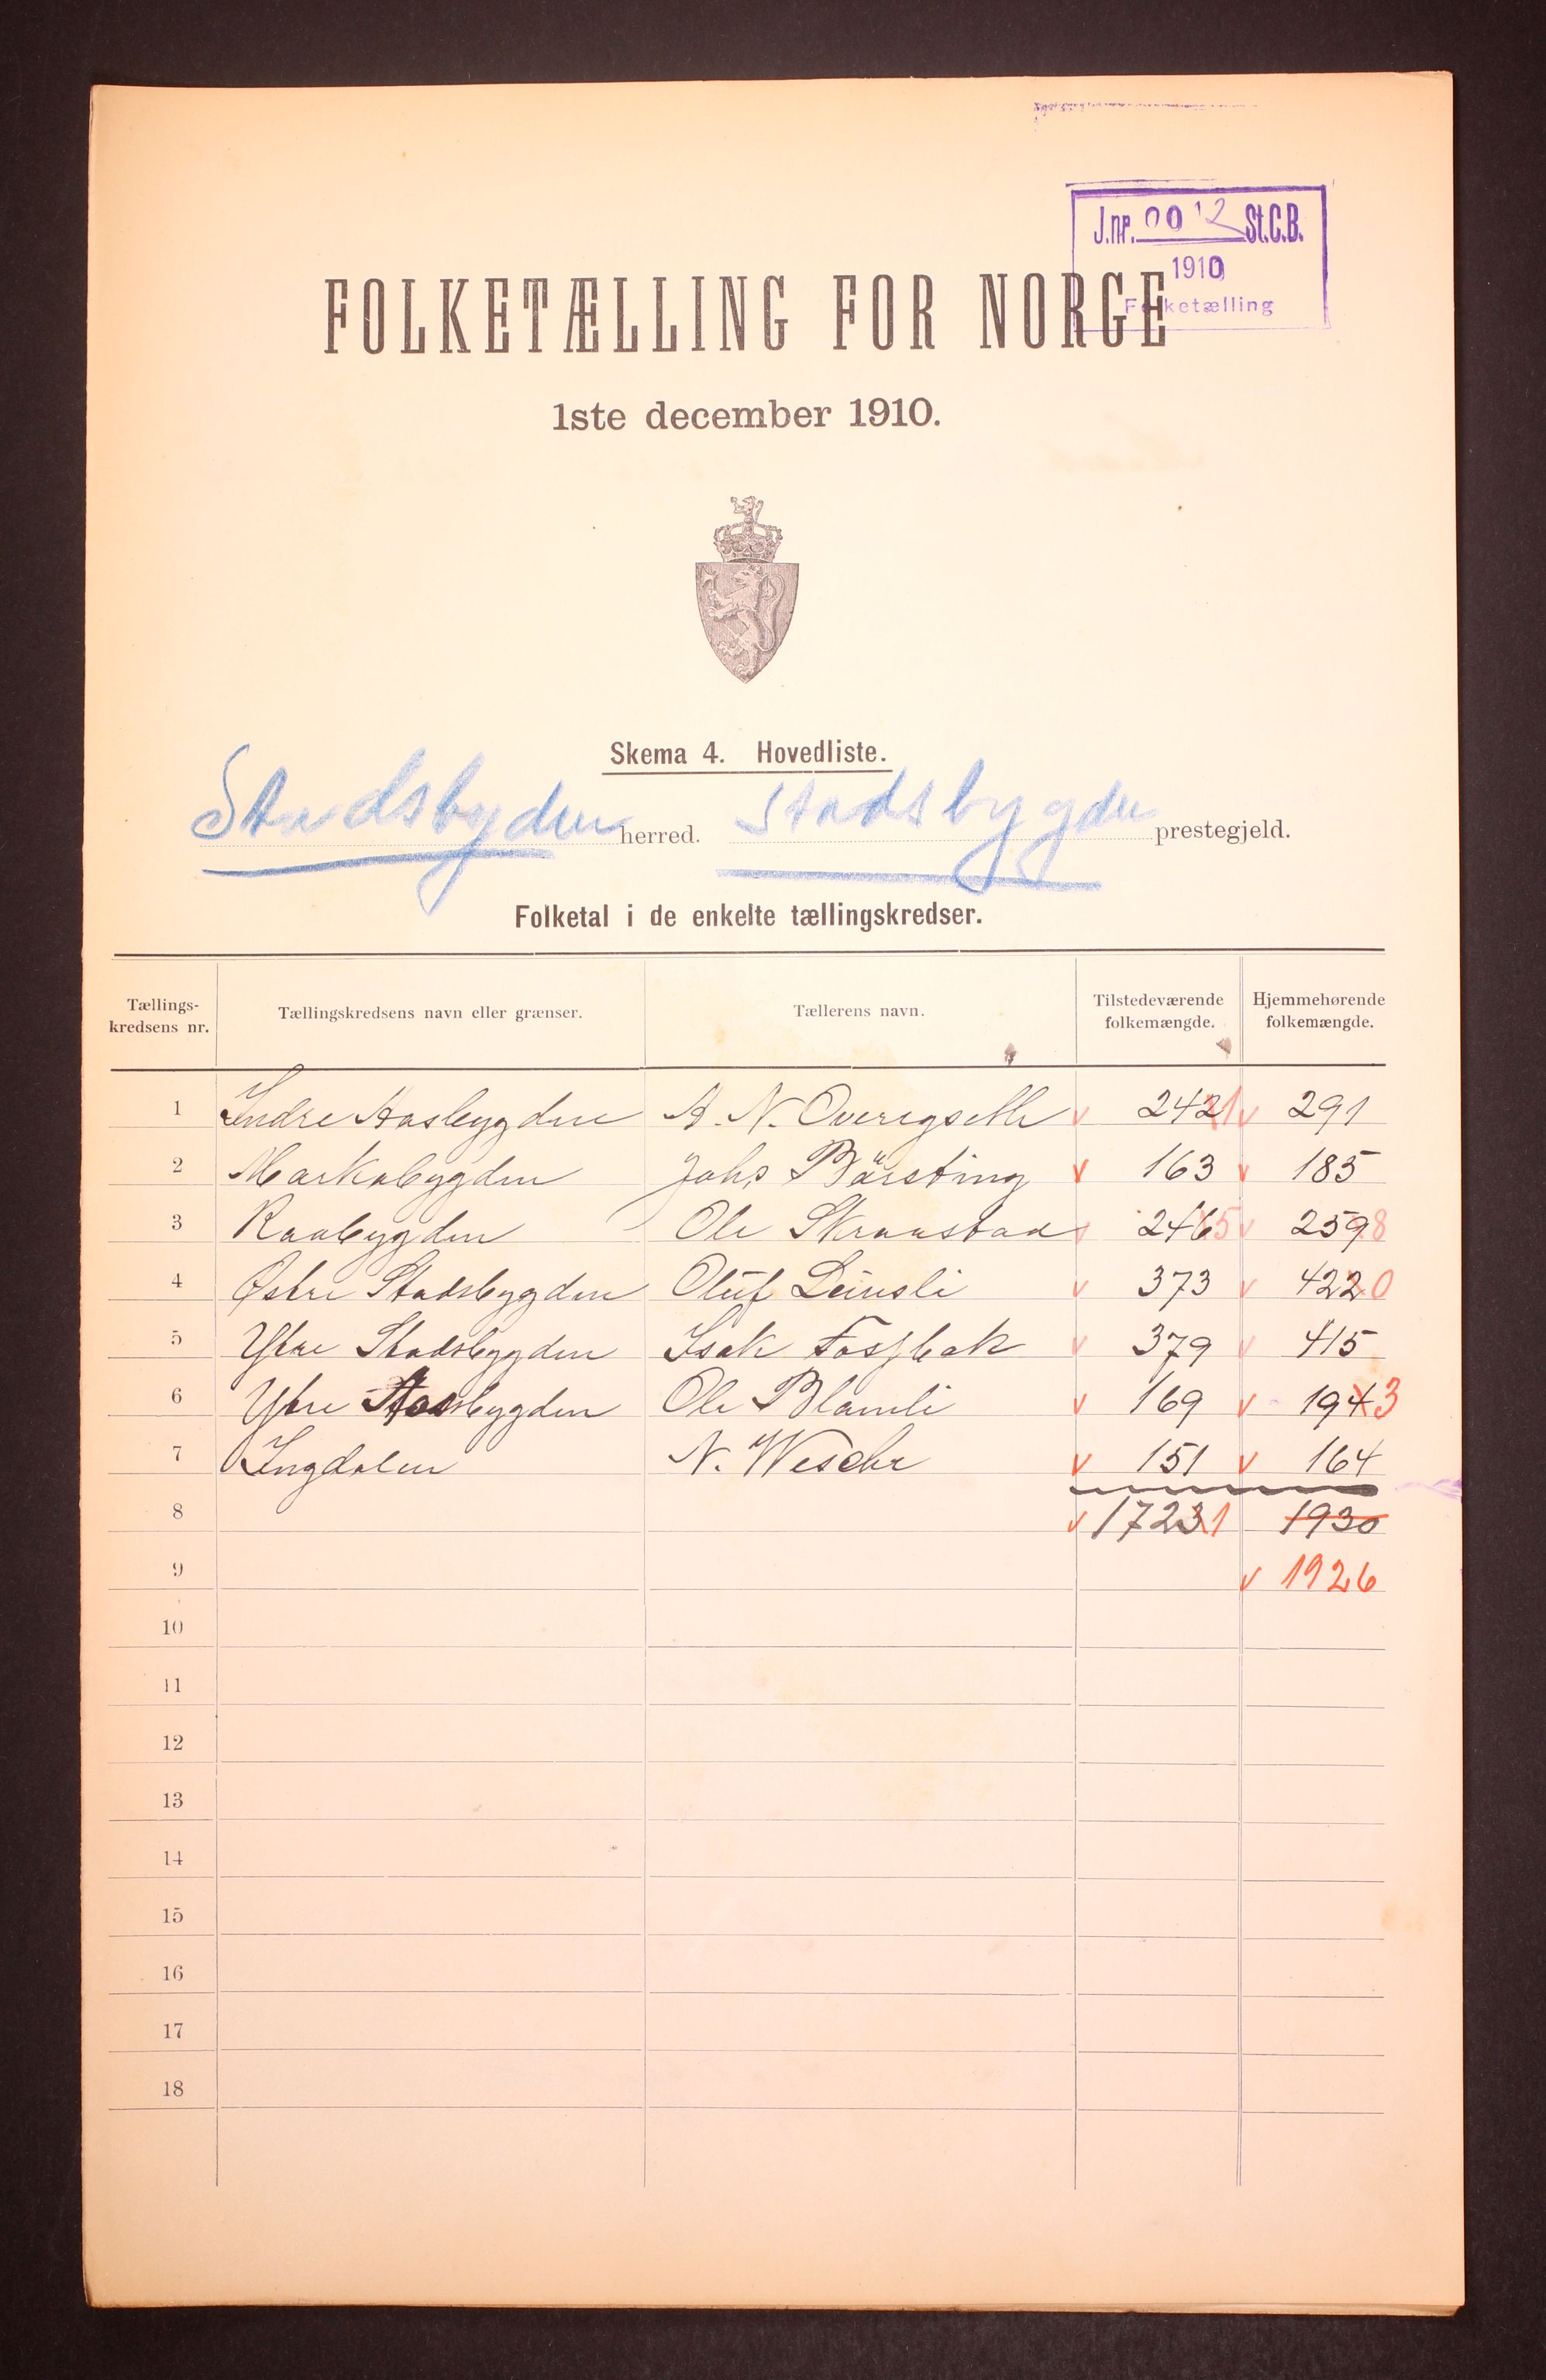 J.nr. 0012 St.C.B.
1910
Folketælling
FOLKETÆLLING FOR NORGE
1ste december 1910.
Skema 4. Hovedliste.
Stadsbygden herred. Stadsbygden prestegjeld.
Folketal i de enkelte tællingskredser.
Tællings-kredsens nr. Tællingskredsens navn eller grænser. Tællerens navn. Tilstedeværende folkemængde. Hjemmehørende folkemængde.
1 Indre Aasbygden A. N. 2421 291
2 Markabygden Johs Börsting 163 185
3 Raabygden Ole Skraastad 2465 2598
4 Østre Stadsbygden Oluf 373 4220
5 Ytre Stadsbygden Isak 379 415
6 Ytre Aasbygden Ole 169 1943
7 Ingdalen N. 151 164
8 17231 1930
9 1926
10
11
12
13
14
15
16
17
18